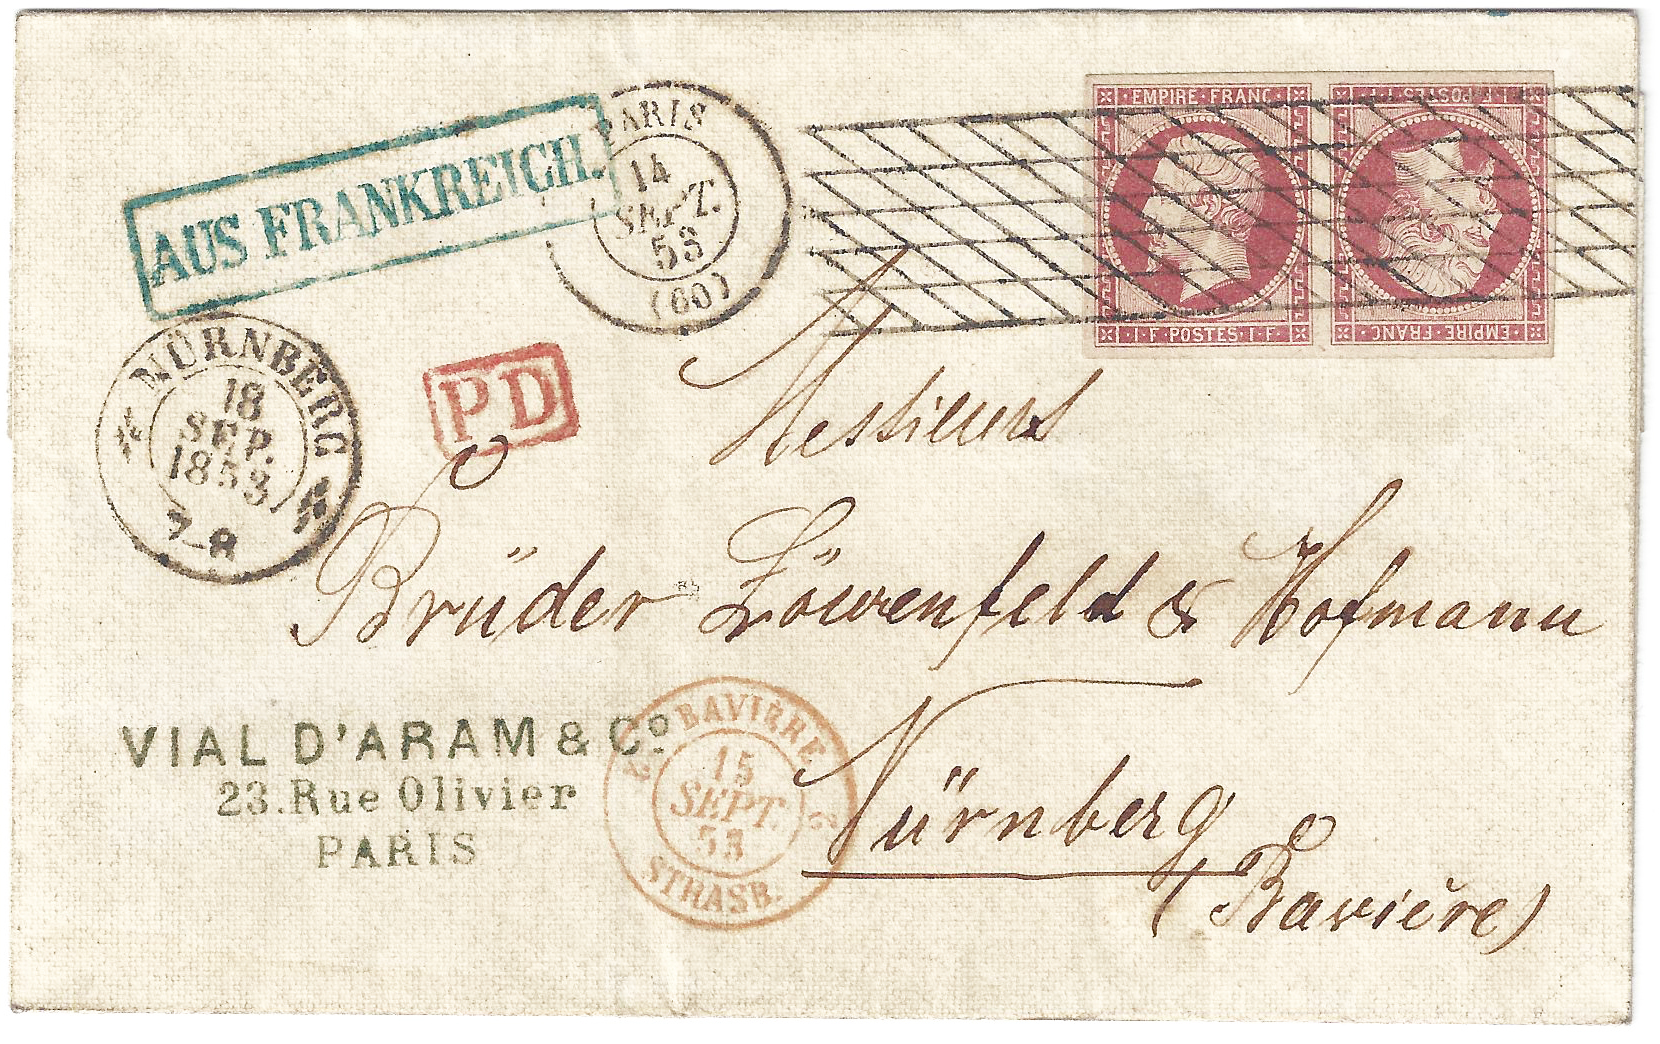 AUS FRANKREICH.
PARIS
14
SEPT.
53
(60)
EMPIRE·FRANC·
I·F·POSTES·I·F
EMPIRE·FRANC
I·F·POSTES·I·F
NÜRNBERG
18
SEP.
1853
7-8
PD
Messieurs
Brüder Löwenfeld & Hofmann
Nürnberg
(Bavière)
VIAL D'ARAM & Co
23. Rue Olivier
PARIS
2 BAVIÈRE 2
15
SEPT.
53
STRASB.